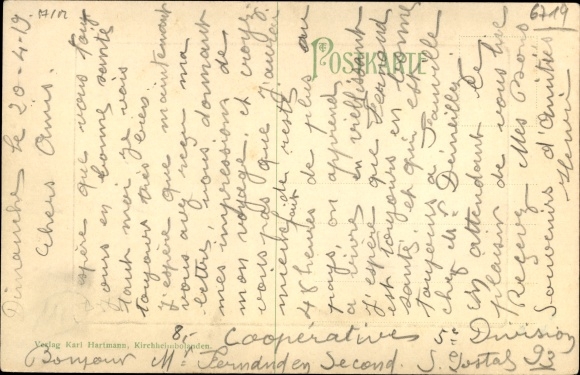 Dimanche Le 20-4-19.
Chers Amis.
J'espère que vous tous
tous en bonne santé
quant moi je vais
toujours très bien.
J'espère que maintenant
vous avez reçu ma
lettre, vous donnant
mes impressions de
mon voyage, et croyez
vous pas que j'aurai
mieux fait de resté
48 heures de plus au
pays, on apprend
a vivre en vieillissant
J'espère que Fernand
est toujours en bonne
santé, et qui est
toujours a Joinville
chez
En attendant le
plaisir de vous lire
Recevez Mes Bons
Souvenirs d'amitiés
Henri
POSTKARTE
Verlag Karl Hartmann, Kirchheimbolanden.
8,-
Coopérative 5e Division
Bonjour Mr Fernand en Second. S. Postal 93
6719